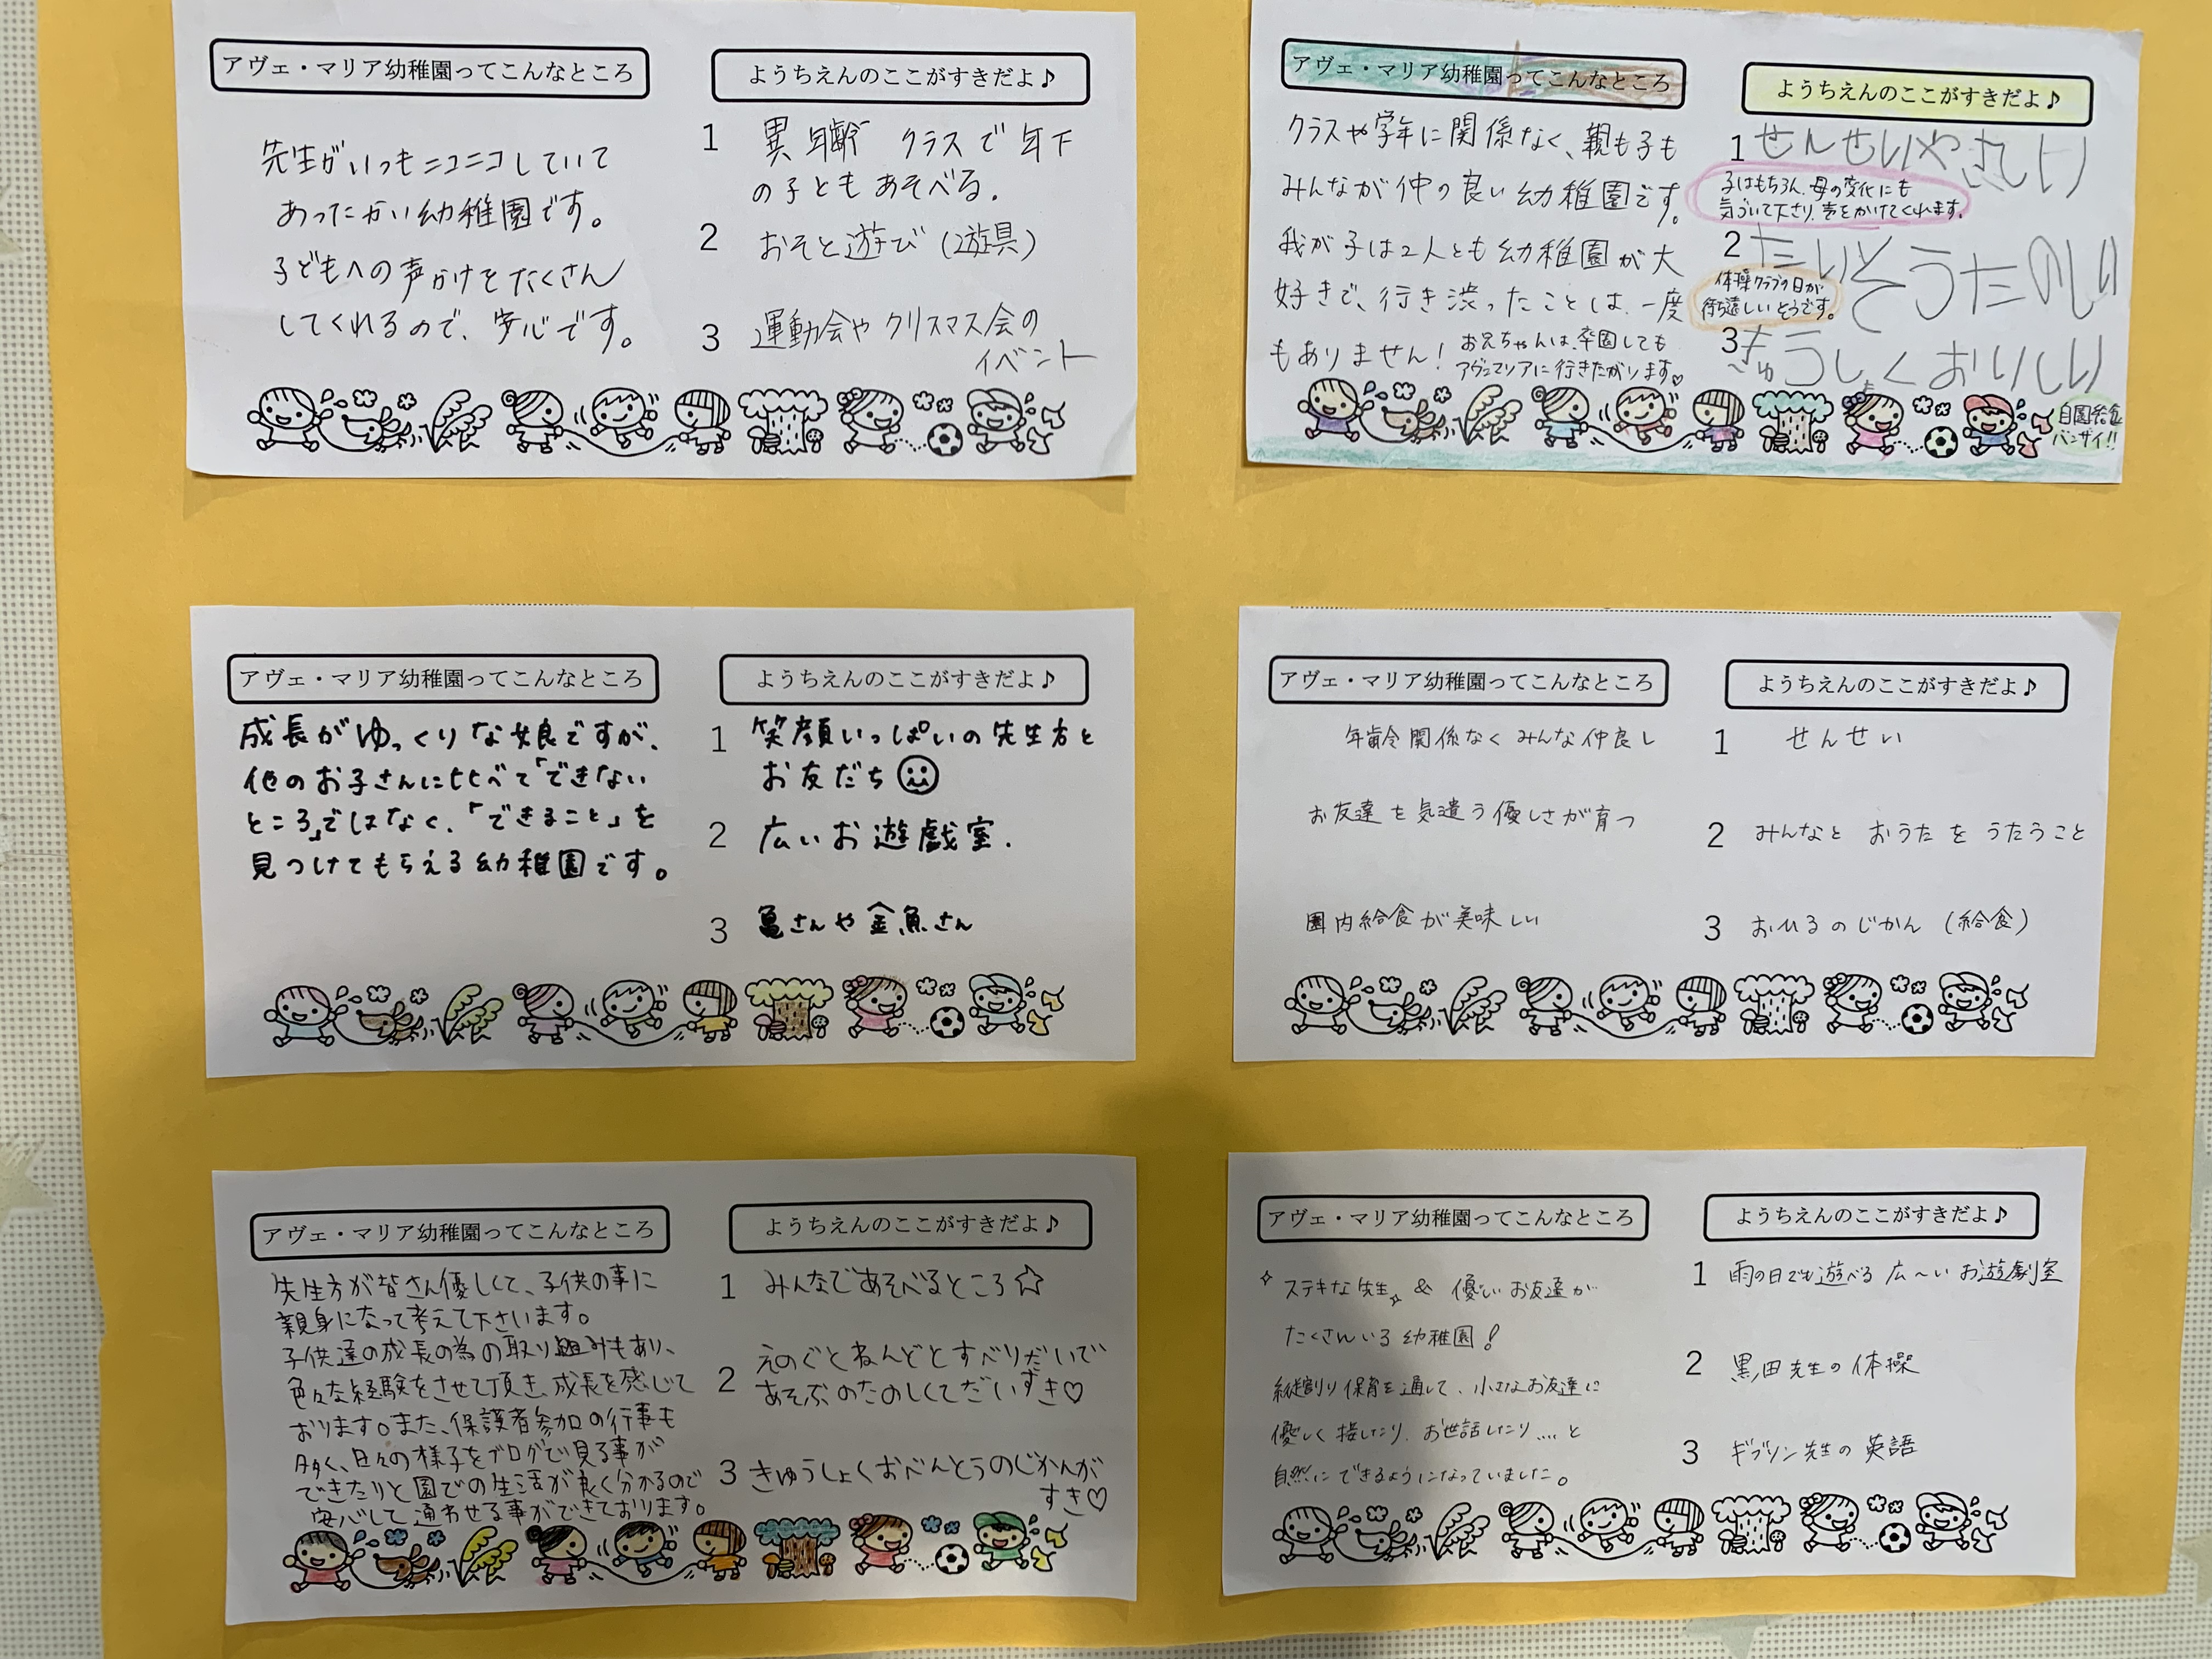 アヴェ・マリア幼稚園ってこんなところ
先生がいつもニコニコしていて
あったかい幼稚園です。
子どもへの声かけをたくさん
してくれるので、安心です。
ようちえんのここがすきだよ♪
1 異年齢クラスで年下
の子ともあそべる.
2 おそと遊び(遊具)
3 運動会やクリスマス会の
イベント
アヴェ・マリア幼稚園ってこんなところ
クラスや学年に関係なく、親も子も
みんなが仲の良い幼稚園です。
我が子は2人とも幼稚園が大
好きで、行き渋ったことは、一度
もありません!
お兄ちゃんは、卒園しても
アヴェマリアに行きたがります♡
ようちえんのここがすきだよ♪
1 せんせいやさしい
子はもちろん、母の変化にも
気づいて下さり、声をかけてくれます。
2 たいそうたのしい
体操クラブの日が
待ち遠しいそうです。
3 きゅうしょくおいしい
自園給食
バンザイ!!
アヴェ・マリア幼稚園ってこんなところ
成長がゆっくりな娘ですが、
他のお子さんに比べて「できない
ところ」ではなく、「できること」を
見つけてもらえる幼稚園です。
ようちえんのここがすきだよ♪
1 笑顔いっぱいの先生方と
お友だち
2 広いお遊戯室.
3 亀さんや金魚さん
アヴェ・マリア幼稚園ってこんなところ
年齢関係なくみんな仲良し
お友達を気遣う優しさが育つ
園内給食が美味しい
ようちえんのここがすきだよ♪
1 せんせい
2 みんなと おうたを うたうこと
3 おひるのじかん (給食)
アヴェ・マリア幼稚園ってこんなところ
先生方が皆さん優しくて、子供の事に
親身になって考えて下さいます。
子供達の成長の為の取り組みもあり、
色々な経験をさせて頂き、成長を感じて
おります。また、保護者参加の行事も
多く、日々の様子をブログで見る事が
できたりと園での生活が良く分かるので
安心して通わせる事ができております。
ようちえんのここがすきだよ♪
1 みんなであそべるところ☆
2 えのぐとねんどとすべりだいで
あそぶのたのしくてだいすき♡
3 きゅうしょくおべんとうのじかんが
すき♡
アヴェ・マリア幼稚園ってこんなところ
ステキな先生 & 優しいお友達が
たくさんいる幼稚園!
縦割り保育を通して、小さなお友達に
優しく接したり、お世話したり....と
自然にできるようになっていました。
ようちえんのここがすきだよ♪
1 雨の日でも遊べる 広〜い お遊劇室
2 黒田先生の体操
3 ギブソン先生の英語